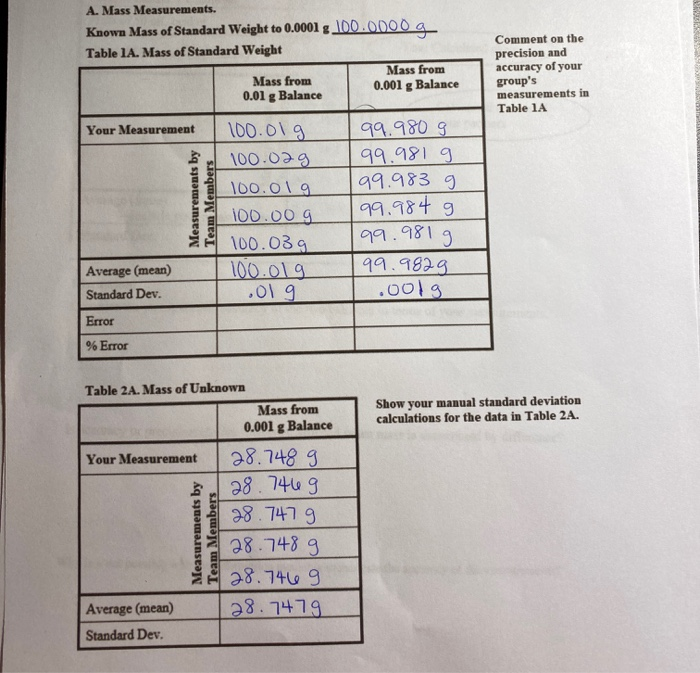 A. Mass Measurements.
Known Mass of Standard Weight to 0.0001 g 100.0000 g
Table 1A. Mass of Standard Weight
Mass from
0.01 g Balance
Mass from
0.001 g Balance
Comment on the
precision and
accuracy of your
group's
measurements in
Table 1A
Your Measurement 100.01 g 99.980 g
Measurements by
Team Members
100.02g 99.981 g
100.01 g 99.983 g
100.00 g 99.984 g
100.03g 99.981 g
Average (mean) 100.01g 99.982g
Standard Dev. .01 g .001g
Error
% Error
Table 2A. Mass of Unknown
Mass from
0.001 g Balance
Show your manual standard deviation
calculations for the data in Table 2A.
Your Measurement 28.748 g
Measurements by
Team Members
28.746 g
28.747 g
28.748 g
28.746 g
Average (mean) 28.747g
Standard Dev.